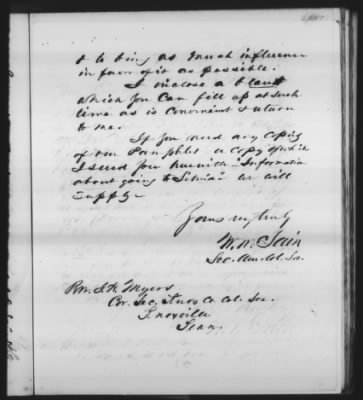 & to bring as much influence
in favor of it as possible.
I inclose a blank
which you can fill up at such
time as is convenient & return
to me.
If you need any copies
of our Pamphlet a copy of which
I send you herewith "Information
about going to Liberia" we will
supply.
Yours very truly
Sec. Am. Col. Soc.
Rev. J. H. Myers
Cor. Sec. Co. Col. Soc.
Knoxville
Tenn.